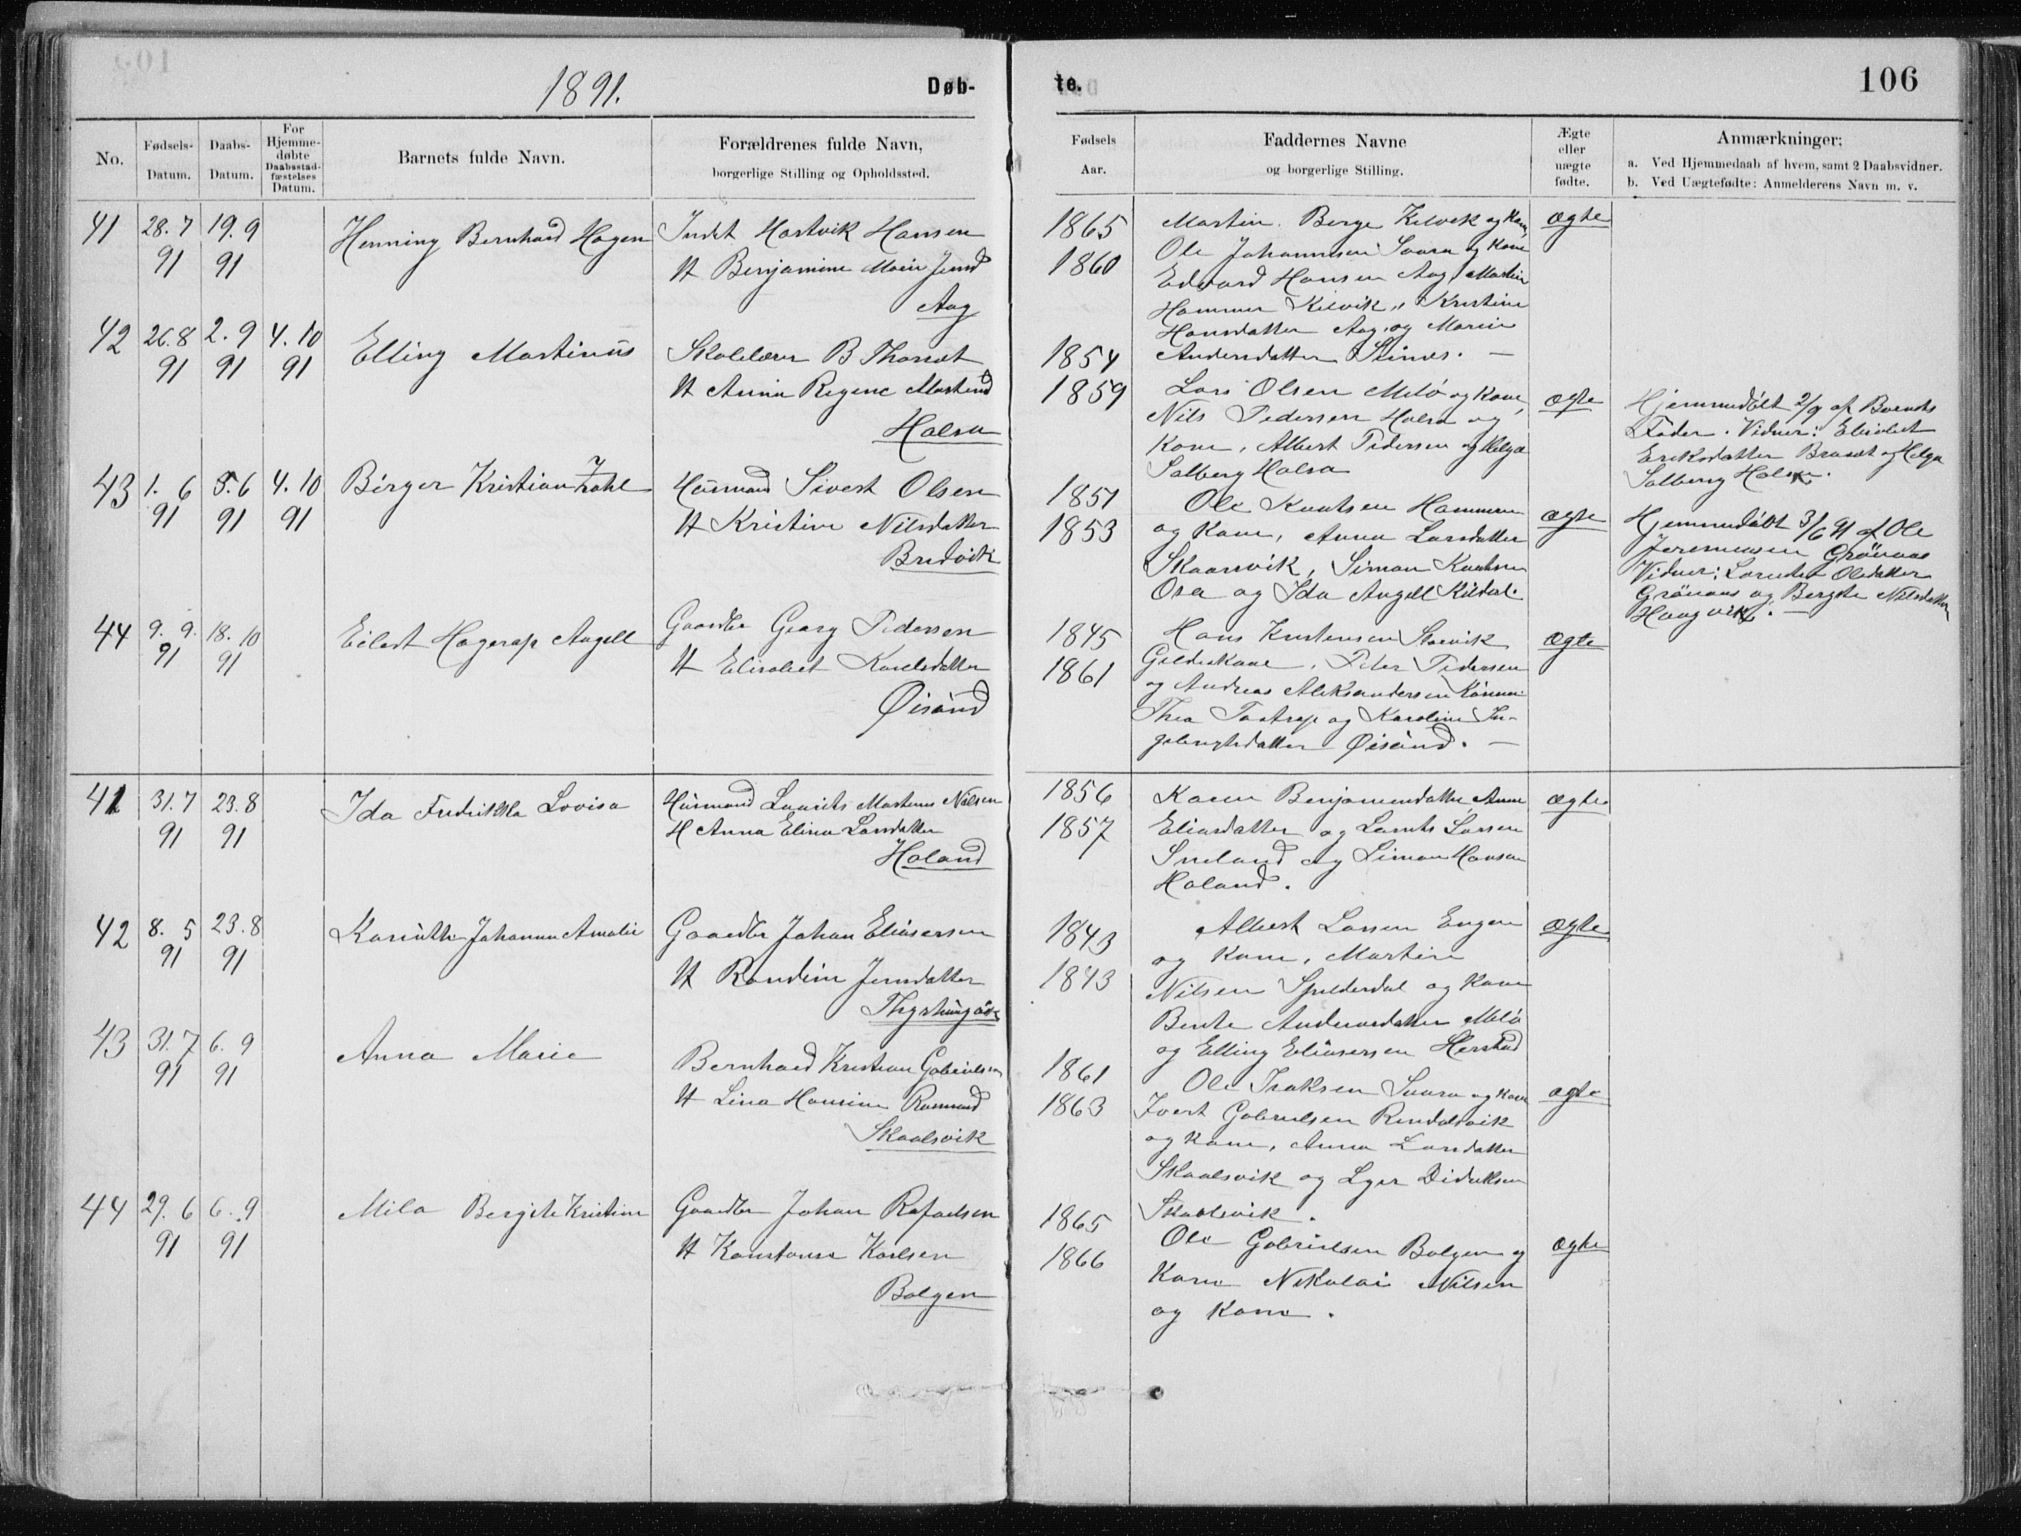 1891.
Døb-
te.
106
No.
Fødsels-
Datum.
Daabs-
Datum.
For
Hjemme-
døbte
Daabsstad-
fæstelses
Datum.
Barnets fulde Navn.
Forældrenes fulde Navn,
borgerlige Stilling og Opholdssted.
Fødsels
Aar.
Faddernes Navne
og borgerlige Stilling.
Ægte
eller
uægte
fødte.
Anmærkninger:
a. Ved Hjemmedaab af hvem, samt 2 Daabsvidner.
b. Ved Uægtefødte: Anmelderens Navn m. v.
41 28.7 91 19.9 91
Henning Bernhard Hagen
Hartvik Hansen
H Benjamine Marie
Aag
1865
1860
ægte
Martin Berge Kilvik og Kone
Ole Johannesen Saura og Kone
Edvard Hansen Aag, Martin
Hammer Kilvik, Kristine
Hansdatter Aag, og Marie
Andersdatter
42 26.8 91 2.9 91 4.10 91
Elling Martinus
Skolelærer B
H Anna Regine
Halsa
1854
1859
ægte
Lars Olsen Melø og Kone,
Nils Pedersen Halsa og
Kone, Albert Pedersen og Helga
Salberg Halsa
Hjemmedøbt 2/9 af Barnets
Fader. Vidner: Elisabet
Eriksdatter og Helga
Salberg Halsa.
43 1.6 91 5.6 91 4.10 91
Birger Kristian Zahl
Husmand Sivert Olsen
H Kristine Nilsdatter
Bredvik
1851
1853
ægte
Ole Knutsen Hammern
og Kone, Anna Larsdatter
Skaanvik, Simon Knutsen
Osa og Ida Angell Kildal.
Hjemmedøbt 3/6 91 af Ole
Jeremiasen Grønaas
Vidner: Olsdatter
Grønaas og Bergite Nilsdatter
Haugvik. —
44 9.9. 91 18.10 91
Eilert Hagerup Angell
Gaardbr Georg Pedersen
H Elisabet Karelsdatter
Øisund
1845
1861
ægte
Hans Kristensen Storvik
Gildeskaal, Peter Pedersen
og Andreas Aleksandersen
Thea Tostrup og Karoline In-
gebrigtsdatter Øisund. —
41 31.7 91 23.8 91
Ida Fredrikka Lovisa
Husmand Laurits Martinus Nilsen
H Anna Elina Larsdatter
Haland
1856
1857
ægte
Karen Benjaminsdatter, Anne
Eliasdatter og Laurits Larsen
og Simon Hansen
Haland.
42 8.5 91 23.8 91
Johanna Amalie
Gaardbr Johan Eliasersen
H Randine Jensdatter
1843
1843
ægte
Albert Larsen Engen
og Kone, Martin
Nilsen Spilderdal og Kone
Bente Andersdatter Melø
og Elling Eliasersen
43 31.7 91 6.9 91
Anna Marie
Bernhard Kristian Gabrielsen
H Lina Hansine
Skaalsvik
1861
1863
ægte
Ole Isaksen Saura og Kone
Ivert Gabrielsen Rendalsvik
og Kone, Anna Larsdatter
Skaalsvik og Didriksen
Skaalsvik.
44 29.6 91 6.9 91
Mila Bergite Kristine
Gaardbr Johan Rafaelsen
H Konstanse Karlsen
Bolgen
1865
1866
ægte
Ole Gabrielsen Bolgen og
Kone Nikolai Nilsen
og Kone.